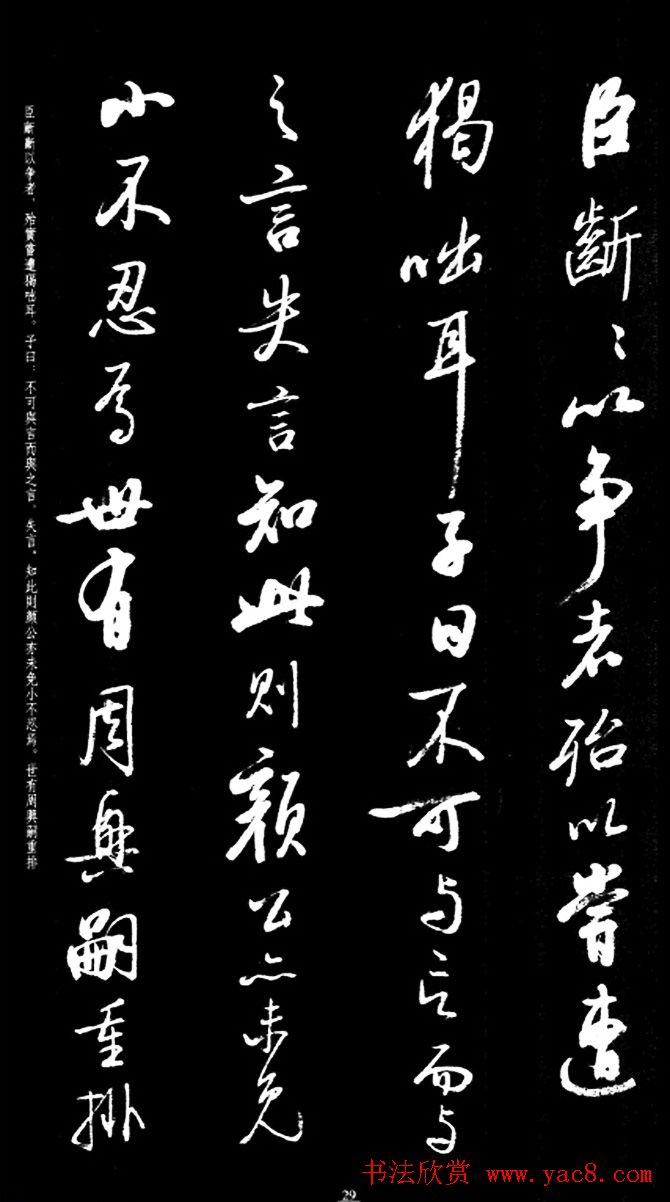 臣齗〻以争者殆以嘗遭
猲咄耳子曰不可与言而与
之言失言知此则颜公亦未免
小不忍焉世有周興嗣重排
臣齗齗以争者,殆實嘗遭猲咄耳。子曰:不可與言而與之言,失言。知此則顏公亦未免小不忍焉。世有周興嗣重排
29
书法欣赏 www.yac8.com